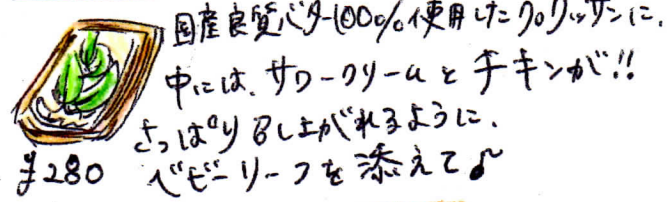 国産良質バター100%使用したクロワッサンに、
中には、サワークリームとチキンが!!
さっぱり召し上がれるように、
¥280 ベビーリーフを添えて♪